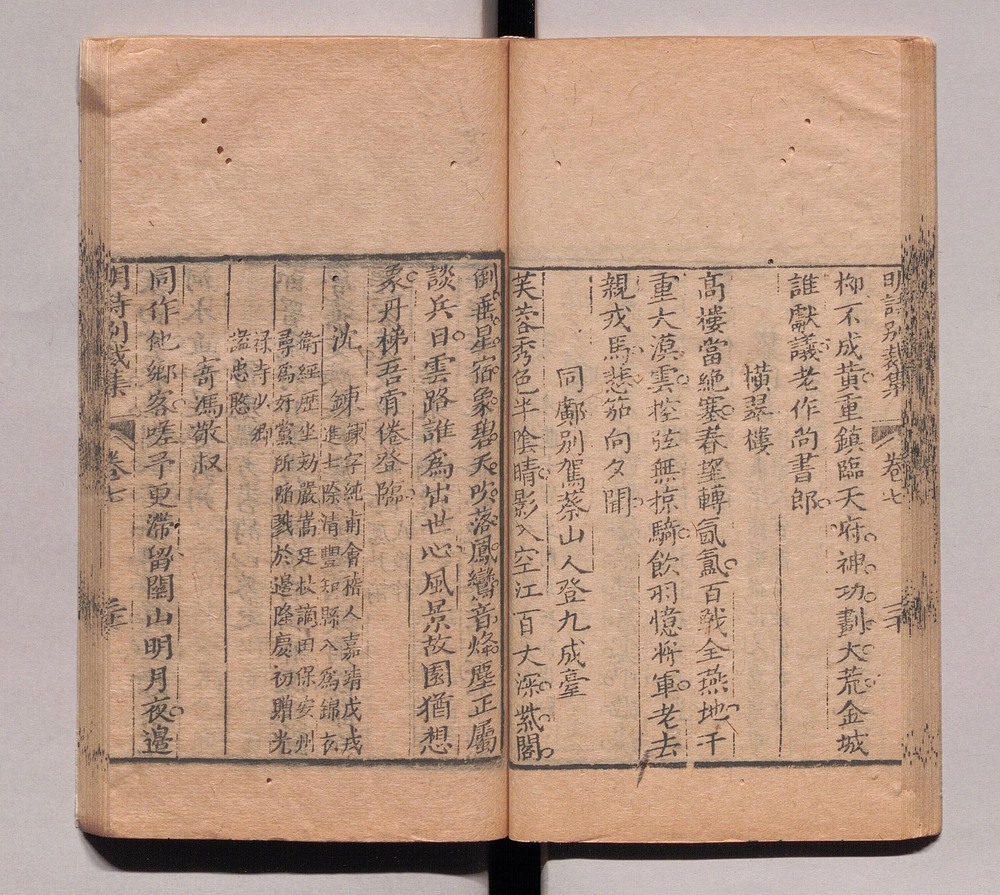 明詩別裁集 卷七 三十
柳不成黃重鎮臨天府神功劃大荒金城
誰獻議老作尚書郎
橫翠樓
高樓當絕塞春望轉氤氳百戰全燕地千
重大漠雲控弦無掠騎飲羽憶將軍老去
親戎馬悲笳向夕聞
同鄺別駕蔡山人登九成臺
芙蓉秀色半陰晴影入空江百丈深紫閣
倒垂星宿象碧天吹落鳳鸞音烽壂正屬
談兵日雲路誰為出世心風景故園猶想
象丹梯吾宵倦登臨
沈鍊
鍊字純甫會稽人嘉靖戊戌
進士除清豐知縣入為錦衣
衛經歷坐劾嚴嵩廷杖謫田保安州
尋為奸黨所陷戮於邊隆慶初贈光
祿寺少卿
諡忠愍
寄馮敬叔
同作他鄉客嗟予更滯留關山明月夜邊
明詩別裁集 卷七